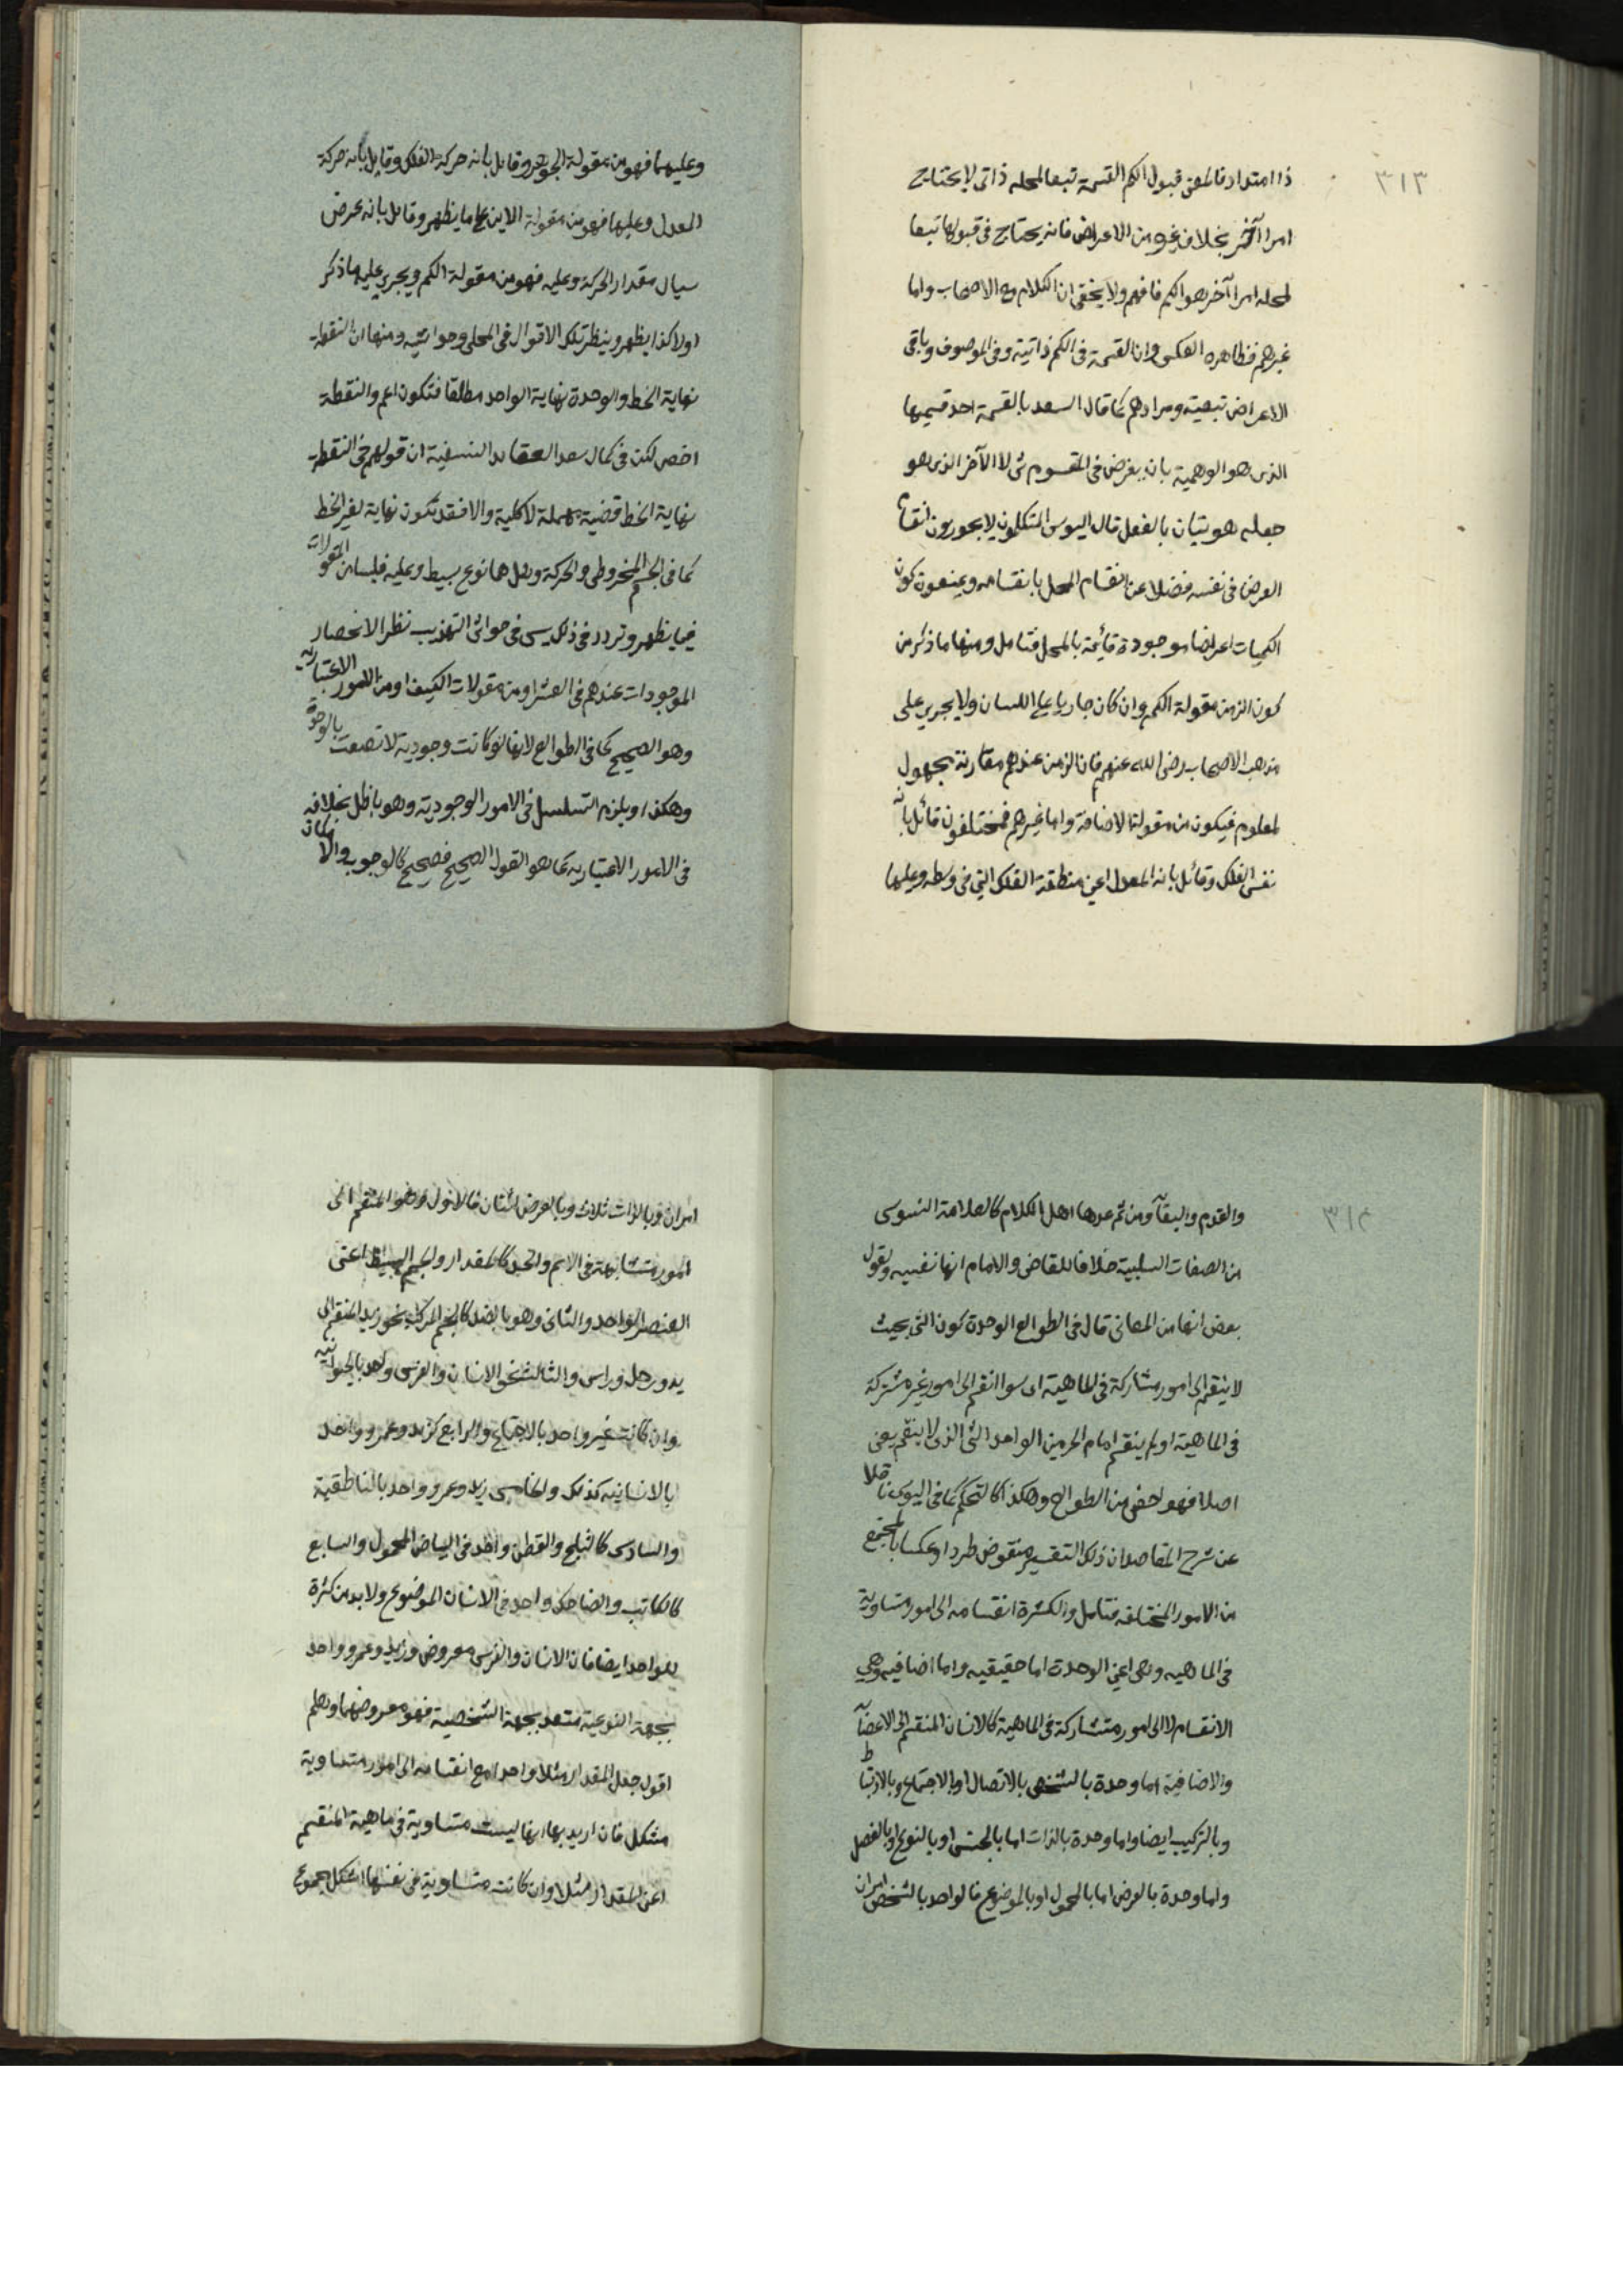 ٣١٣
ذا امتداد فاطعن قبول الكم القسمة تبعا لمحله ذاتى لا يحتاج
امرا آخر بخلاف غيره من الاعراض فانه يحتاج فى قبولها تبعا
لمحله امرا آخر هو الكم فافهم ولا يخفى ان الكلام مع الاصحاب واما
غيرهم فظاهره العكس وان القسمة فى الكم ذاتية وفى الموصوف وباقى
الاعراض تبعية ومرادهم كما قال السعد بالقسمة احد قسميها
الذى هو الوهمية بان يفرض فى المقسوم شى لا الآخر الذى هو
جعله هويتيان بالفعل قال اليوسى المتكلمون لا يجوزون انقسام
العرض فى نفسه فضلا عن انقسام المحل بانقسامه ويمنعون كون
الكميات اعراضا موجودة قائمة بالمحل فتامل ومنها ما ذكر من
كون الزمن مقولة الكم وان كان جاريا على اللسان ولا يجرى على
مذهب الاصحاب رضى الله عنهم فان الزمن عندهم مقارنة مجهول
لمعلوم فيكون من مقولة الاضافة واما غيرهم فمختلفون قائل بانه
نفس الفلك وقائل بانه المعدل اعنى منطقة الفلك التى فى وسطه وعليها
وعليهما فهو من مقولة الجوهر وقايل بانه حركة الفلك وقايل بانه حركة
المعدل وعليها فهو من مقولة الاين على ما يظهر وقايل بانه عرض
سيال مقدار الحركة وعليه فهو من مقولة الكم ويجرى عليه ما ذكر
اولا كذا يظهر وينظر تلك الاقوال فى المحلى وحواشيه ومنها ان النقطة
نهاية الخط والوحدة نهاية الواحد مطلقا فتكون اعم والنقطة
اخص لكن فى كمال سعد العقايد النسفية ان قولهم فى النقطة
نهاية الخط قضية مهملة لا كلية والا فقد تكون نهاية لغير الخط
كما فى الجسم المخروطى والحركة وهل هما نوع بسيط وعليه فليسا من المقولات
فيما يظهر وتردد فى ذلك يس فى حواشى التهذيب نظر الانحصار
الموجودات عندهم فى العشر او من مقولات الكيف او من الامور الاعتبارية
وهو الصحيح كما فى الطوالع لانها لو كانت وجودية لاتصفت بالوحدة
وهكذا ويلزم التسلسل فى الامور الوجودية وهو باطل بخلافه
فى الامور الاعتباريه كما هو القول الصحيح فصحيح كالوجوب والامكان
٣١٤
والقدم والبقآ ومن ثم عدها اهل الكلام كالعلامة السنوسى
من الصفات السلبية خلافا للقاضى والامام انها نفسيه ولقول
بعض انها من المعانى قال فى الطوالع الوحدة كون الشى بحيث
لا ينقسم الى امور مشاركة فى الماهية اى سوا انقسم الى امور غير مشتركة
فى الماهية او لم ينقسم امام الحرمين الواحد الشى الذى لا ينقسم يعنى
اصلا فهو اخص من الطوالع وهكذا كالتحكم كما فى اليوسى ناقلا
عن شرح المقاصد ان ذلك التفسير منقوض طردا وعكسا بالمجتمع
من الامور المختلفه فتامل والكثرة انقسامه الى امور متساوية
فى الماهيه وهى اعنى الوحدة اما حقيقيه واما اضافيه وهى
الانقسام لا الى امور متشاركة فى الماهية كالانسان المنقسم الى الاعضآء
والاضافية اما وحدة بالشخص بالاتصال او بالاجتماع وبالارتباط
وبالتركيب ايضا واما وحدة بالذات اما بالجنس او بالنوع او بالفصل
واما وحدة بالعرض اما بالمحمول او بالموضوع فالواحد بالشخص امران
امران وبالذات ثلاث وبالعرض اثنان فالاول وهو المنقسم الى
امور متشابهة فى الاسم والحد كالمقدار والجسم البسيط اعنى
العنصر الواحد والثانى وهو بالضد كالجسم المركب نحو زيد المنقسم الى
يد ورجل وراس والثالث نحو الانسان والفرس واحد بالحيوانية
وان كانت غير واحد بالاجتماع والرابع كزيد وعمرو واحد
بالانسانيه كذلك والخامس زيد وعمرو واحد بالناطقية
والسادس كالثلج والقطن واحد فى البياض المحمول والسابع
كالكاتب والضاحك واحد فى الانسان الموضوع ولا بد من كثرة
لواحد ايضا فان الانسان والفرس معروض وزيد وعمرو واحد
بجهة النوعية متعدد بجهة الشخصية فهو معروضهما وهلم
اقول جعل المقدار مثلا واحدا مع انقسامه الى امور متساوية
مشكل فان اريد بها انها ليست متساوية فى ماهية المنقسم
اعنى المقدار مثلا وان كانت متساوية فى نفسها اشكل بمجموع